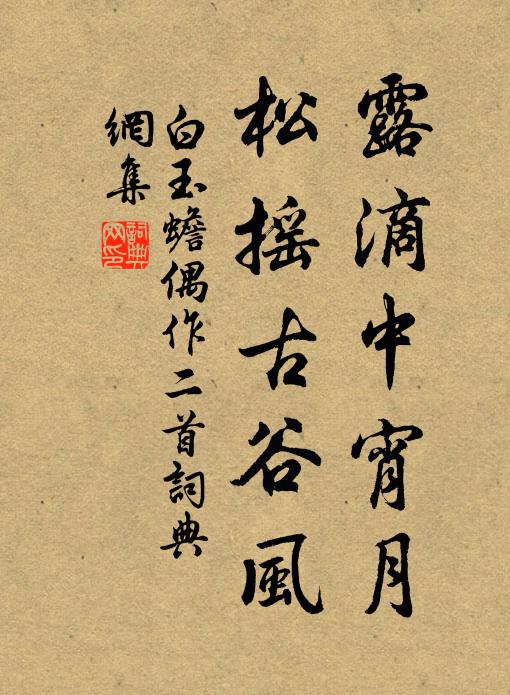 露滴中宵月
松搖古谷風
白玉蟾偶作二首詞典
網集
詞典網印